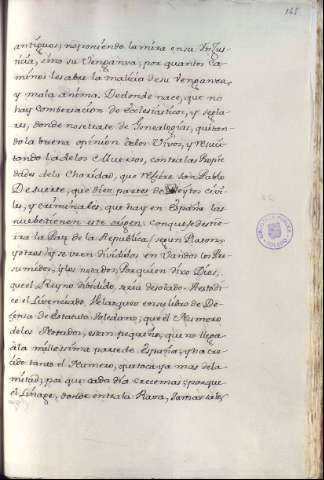 165
antiguos; no poniendo la mira en su Injus-
ticia, sino su Venganza, por quantos Ca-
minos les abre la malicia de su Venganza,
y mala anima. De donde nace, que no
hay combersacion de Eclesiasticos, y segla-
res, donde no se trate de Genealogías, quitan-
do la buena opinion de los Vivos, y resuci-
tando la de los Muertos, contra las Propie-
dades de la Charidad, que refiere San Pablo
De suerte, que diez partes de Pleytos civi-
les, y criminales, que hay en España las
nuebe tienen este origen: Con que se destie-
rra la Paz de la Republica (segun Platon,
y otros) si se veen divididos en Vandos los Pre-
sumidos, y los notados, Por quien dixo Dios,
que el Reyno dibidido, seria desolado.
el Licenciado Velazquez en su libro de De-
fensa de Estatuto Toledano, que el Numero
de los Notados, es tan pequeño, que no llega-
à la millesima parte de España, y ha cre-
cido tanto el Numero, que toca ya mas de la
mitad; por que cada dia crecemas; porque
el Linage, donde entra la Raza,